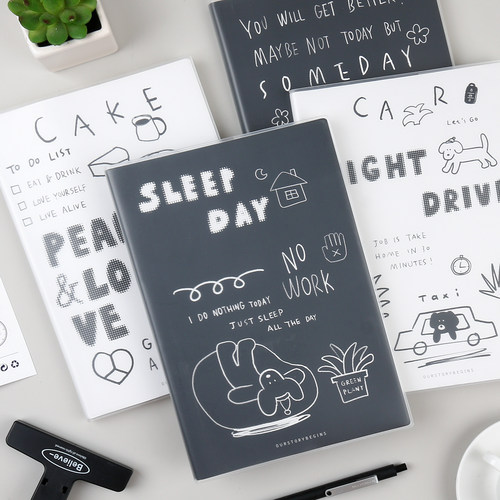 YOU WILL GET BETTER!
MAYBE NOT TODAY BUT
SOMEDAY
CAKE
TO DO LIST
EAT & DRINK
LOVE YOURSELF
LIVE ALIVE
PEA
& LO
VE
G
A
SLEEP
DAY
NO
WORK
I DO NOTHING TODAY
JUST SLEEP
ALL THE DAY
GREEN
PLANT
OURSTORYBEGINS
CAR
Let's Go
IGHT
DRIV
JOB IS TAKE
HOME IN 10
MINUTES!
Taxi
OURSTORYBEGINS
Believe~